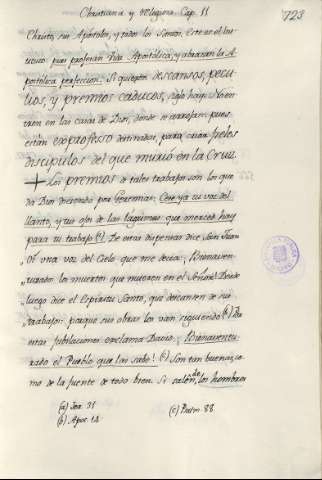 Christiana y Religiosa Cap. 11
723
Christo, sus Apóstoles, y todos los Santos. Este es el las-
pues profesan Vida Apostólica, y abrazan la A-
postólica perfeccion. Si quieren descansos, pecu-
lios, y premios caducos, siglo hay: No en-
tren en las casas de Dios, donde se arrojan, pues
están ex professo destinadas, para criar fieles
discipulos del que murió en la Cruz.
+ Los premios de tales trabajos son los que
da Dios diciendo por Geremias: Cese ya tu voz del
llanto, y tus ojos de las lagrimas que merced hay
para tu trabajo (a). De estas dispensas dice San Juan
Oí una voz del Cielo que me decia: Bienaven-
turados los muertos que mueren en el Señor! Desde
luego dice el Espiritu Santo, que descansen de sus
trabajos: porque sus obras los van siguiendo (b). De
estas jubilaciones exclama David: Bienaventu-
rado el Pueblo que las sabe! (c) Son tan buenas, co-
mo de la fuente de todo bien. Si salen de los hombres
(a) Jer. 31
(c) Psalm. 88
(b) Apoc. 14